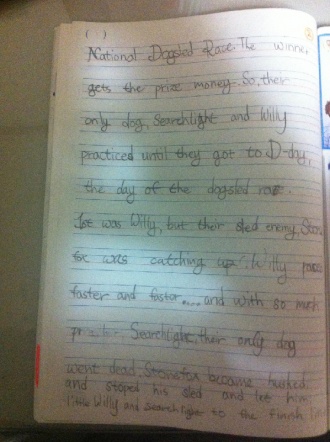 ( )
National Dogsled Race. The winner
gets the prize money. So, their
only dog, Searchlight and Willy
practiced until they got to D-day,
the day of the dogsled race.
1st was Willy, but their sled enemy, Stone
fox was catching up. Willy
faster and faster.... and with so much
Searchlight, their only dog
went dead. Stonefox became
and stoped his sled and let him
little Willy and Searchlight to the finish